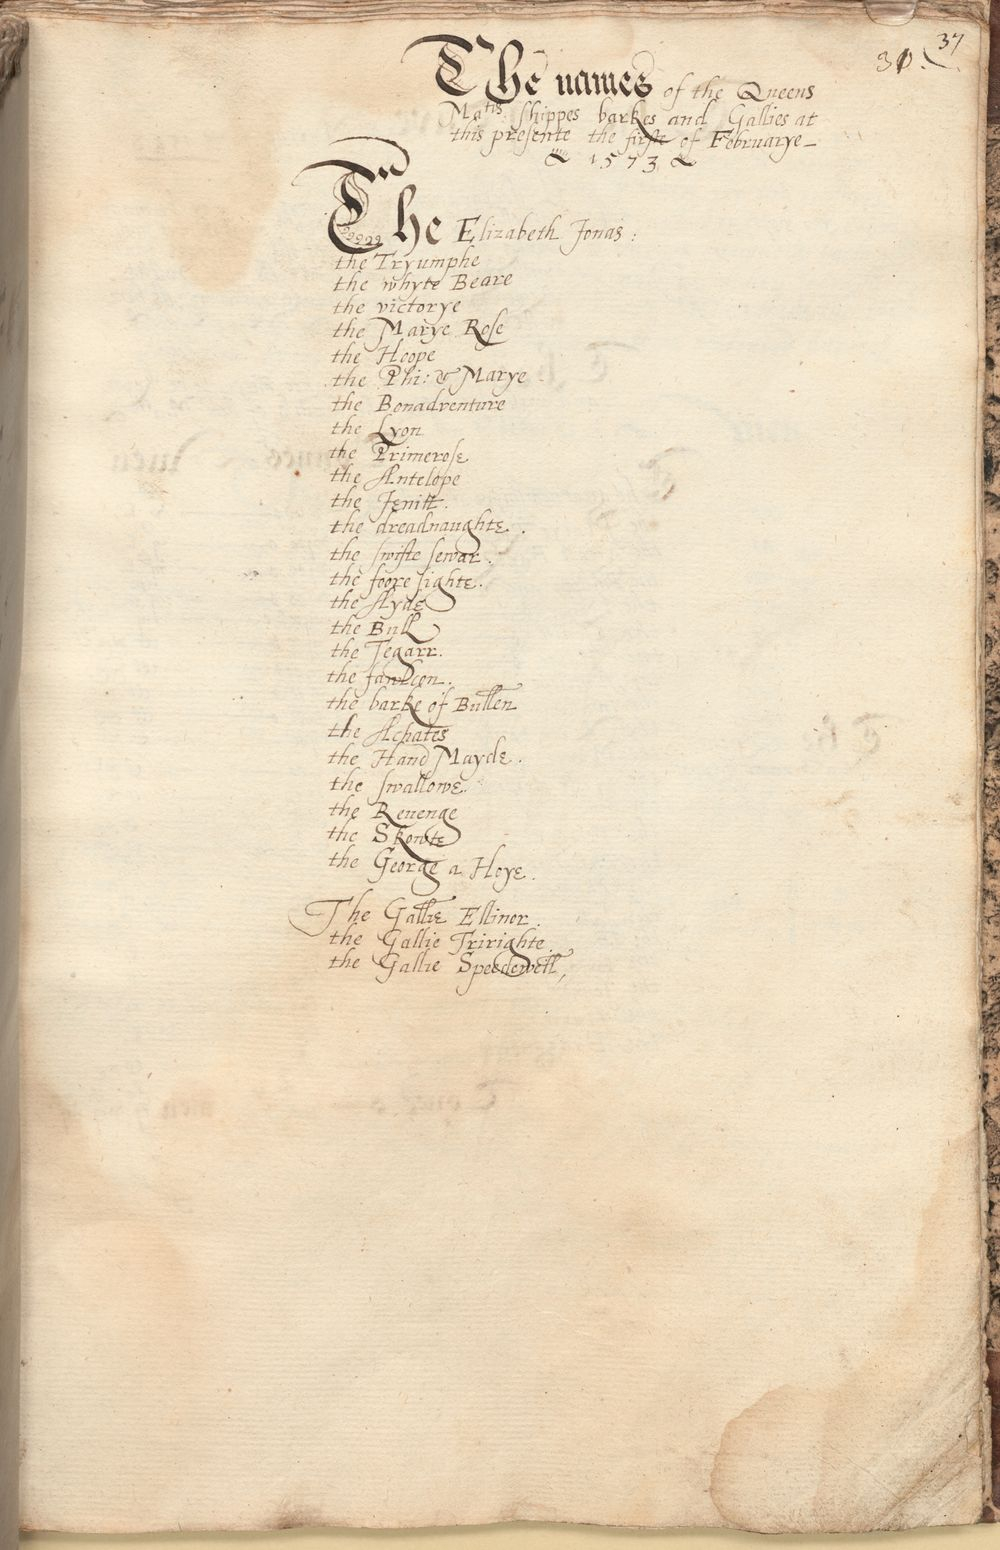 37
30.
The names of the Queens
Matis shippes barkes and Gallies at
this presente the firste of Februarye
1573
The Elizabeth Jonas:
the Tryumphe
the whyte Beare
the victorye
the Marye Rose
the Hoope
the Phi: & Marye
the Bonadventure
the Lyon
the Primerose
the Antelope
the Jenitt.
the dreadnaughte.
the swifte sewar.
the foore sighte.
the Ayde
the Bull
the Tegarr.
the faulcon.
the barke of Bullen
the Achates
the Hand Mayde.
the swallowe.
the Revenge
the Skowte
the George a Hoye.
The Gallie Ellinor.
the Gallie Tririghte.
the Gallie Speedewell,